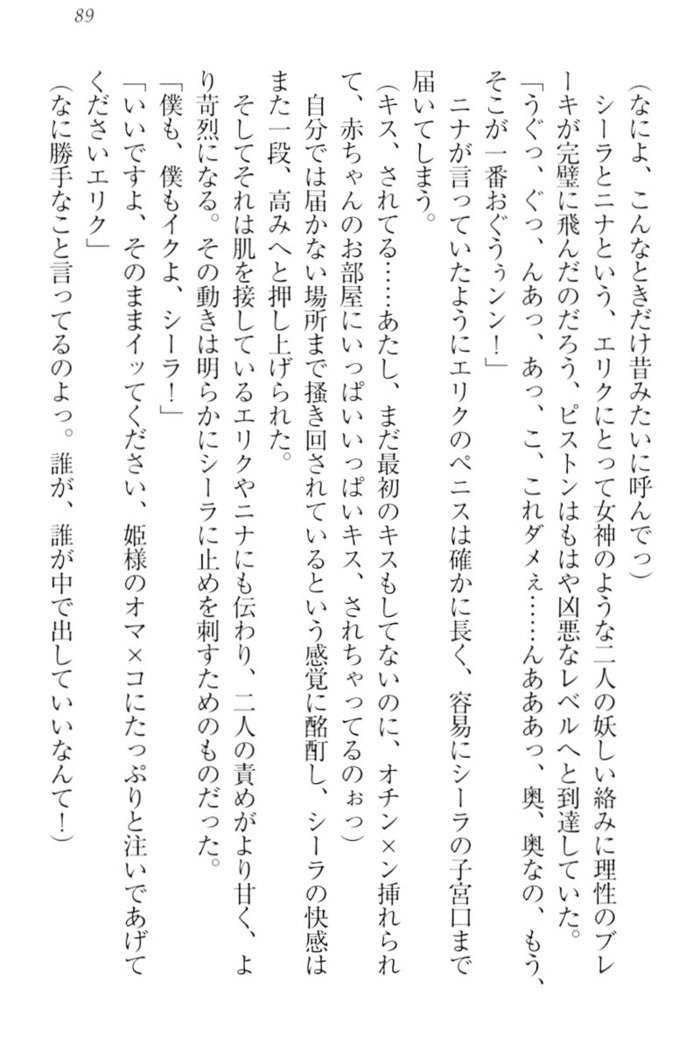 89
（なによ、こんなときだけ昔みたいに呼んでっ）
シーラとニナという、エリクにとって女神のような二人の妖しい絡みに理性のブレ
ーキが完璧に飛んだのだろう、ピストンはもはや凶悪なレベルへと到達していた。
「うぐっ、ぐっ、んあっ、あっ、こ、これダメぇ……んあああっ、奥、奥なの、もう、
そこが一番おぐうぅンン！」
ニナが言っていたようにエリクのペニスは確かに長く、容易にシーラの子宮口まで
届いてしまう。
（キス、されてる……あたし、まだ最初のキスもしてないのに、オチン×ン挿れられ
て、赤ちゃんのお部屋にいっぱいいっぱいキス、されちゃってるのぉっ）
自分では届かない場所まで掻き回されているという感覚に酩酊し、シーラの快感は
また一段、高みへと押し上げられた。
そしてそれは肌を接しているエリクやニナにも伝わり、二人の責めがより甘く、よ
り苛烈になる。その動きは明らかにシーラに止めを刺すためのものだった。
「僕も、僕もイクよ、シーラ！」
「いいですよ、そのままイッてください、姫様のオマ×コにたっぷりと注いであげて
くださいエリク」
（なに勝手なこと言ってるのよっ。誰が、誰が中で出していいなんて！）